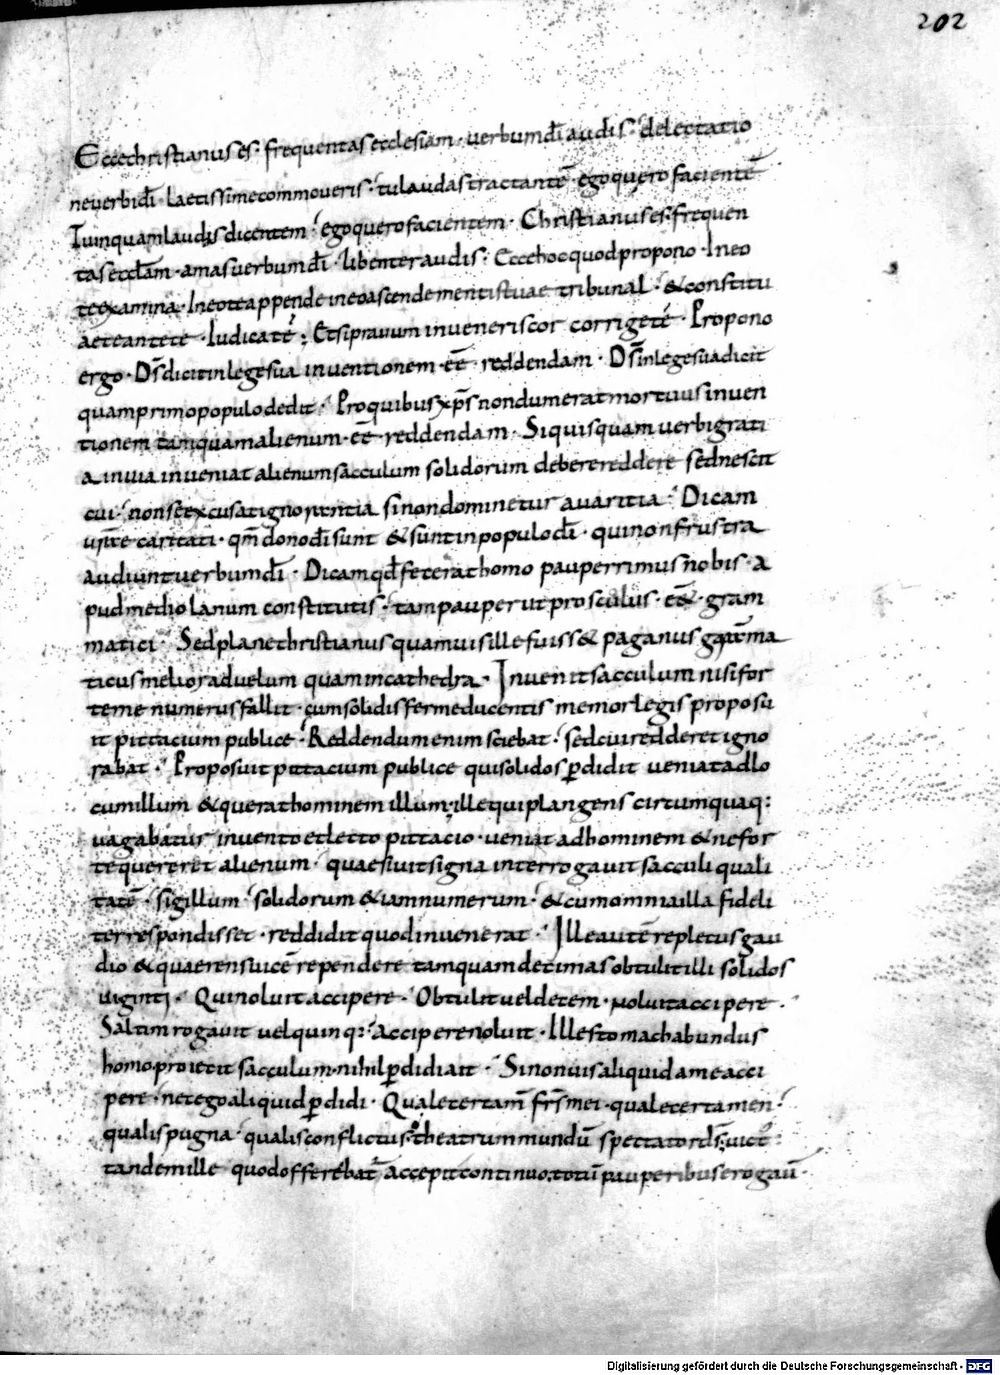 202
Ecce christianus es· frequentas ecclesiam· uerbum dī audis· delectatio
ne uerbi dī· Laetissime commoueris· tu laudas tractantē· ego quero facientē
Tu inquam laudas dicentem· ego quero facientem· Christianus es· frequen
tas eccłam· amas uerbum dī· libenter audis· Ecce hoc quod propono· In eo
te examina· In eo te appende in eo ascende mentis tuae tribunal· & constitu
ae te ante te· Iudica té; Et si prauum inueneris cor corrige té· Propono
ergo· Dš dicit in lege sua inuentionem· eē· reddendam· Dš in lege sua dicit
quam primo populo dedit· Pro quibus xp̄s nondum erat mortuus inuen
tionem tamquam alienum· eē· reddendam· Si quisquam uerbi grati
a in uia inueniat alienum sacculum solidorum debere reddere sed nescit
cui· non se excusat ignorentia si non dominetur auaritia· Dicam
caritati· qm̄ dono dī sunt & sunt in populo dī· qui non frustra
audiunt uerbum dī· Dicam qd̄ fecerat homo pauperrimus nobis· a
pud mediolanum constitutis· tam pauper ut proscolus· e&· gram
matici· Sed plane christianus quamuis ille fuiss& paganus gramma
ticus melior ad uelum quam in cathedra· Inuenit sacculum nisi for
te me numerus fallit· cum solidis ferme ducentis memor legis proposu
it pittacium publice· Reddendum enim sciebat· sed cui redderet igno
rabat· Proposuit pittacium publice qui solidos p̱didit ueniat ad lo
cum illum & querat hominem illum· ille qui plangens circumquaq:
uagabatur inuento et lecto pittacio· uenit ad hominem & ne for
te quereret alienum· quaesiuit signa interrogauit sacculi quali
tatē· sigillum· solidorum & iam numerum· & cum omnia illa fideli
ter respondisset· reddidit quod inuenerat· Ille autē repletus gau
dio & quaerens uicē rependere tamquam decimas obtulit illi solidos
uiginti· Qui noluit accipere· Obtulit uel decem· noluit accipere·
Saltim rogauit uel quinq: accipere noluit· Ille stomachabundus
homo proiecit sacculum· nihil p̱didi ait· Si non uis aliquid a me acci
pere· nec ego aliquid p̱didi· Quale certam̄ frs̄ mei· quale certamen·
qualis pugna· qualis conflictus· theatrum mundū spectator ds̄; uict:
tandem ille quod offerebat᷑ accepit continuo· totū pauperibus erogau̅·
Digitalisierung gefördert durch die Deutsche Forschungsgemeinschaft - DFG